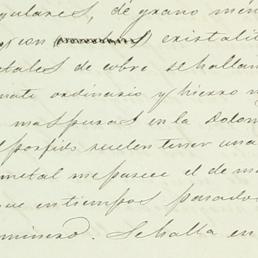 gulares, de grano men
cristali
tales de cobre se hallan
mate ordinario y hierro
mas puras en la Dolom
porfido suelen tener una
metal me parece el de m
que en tiempos pasados
minero. Se halla en